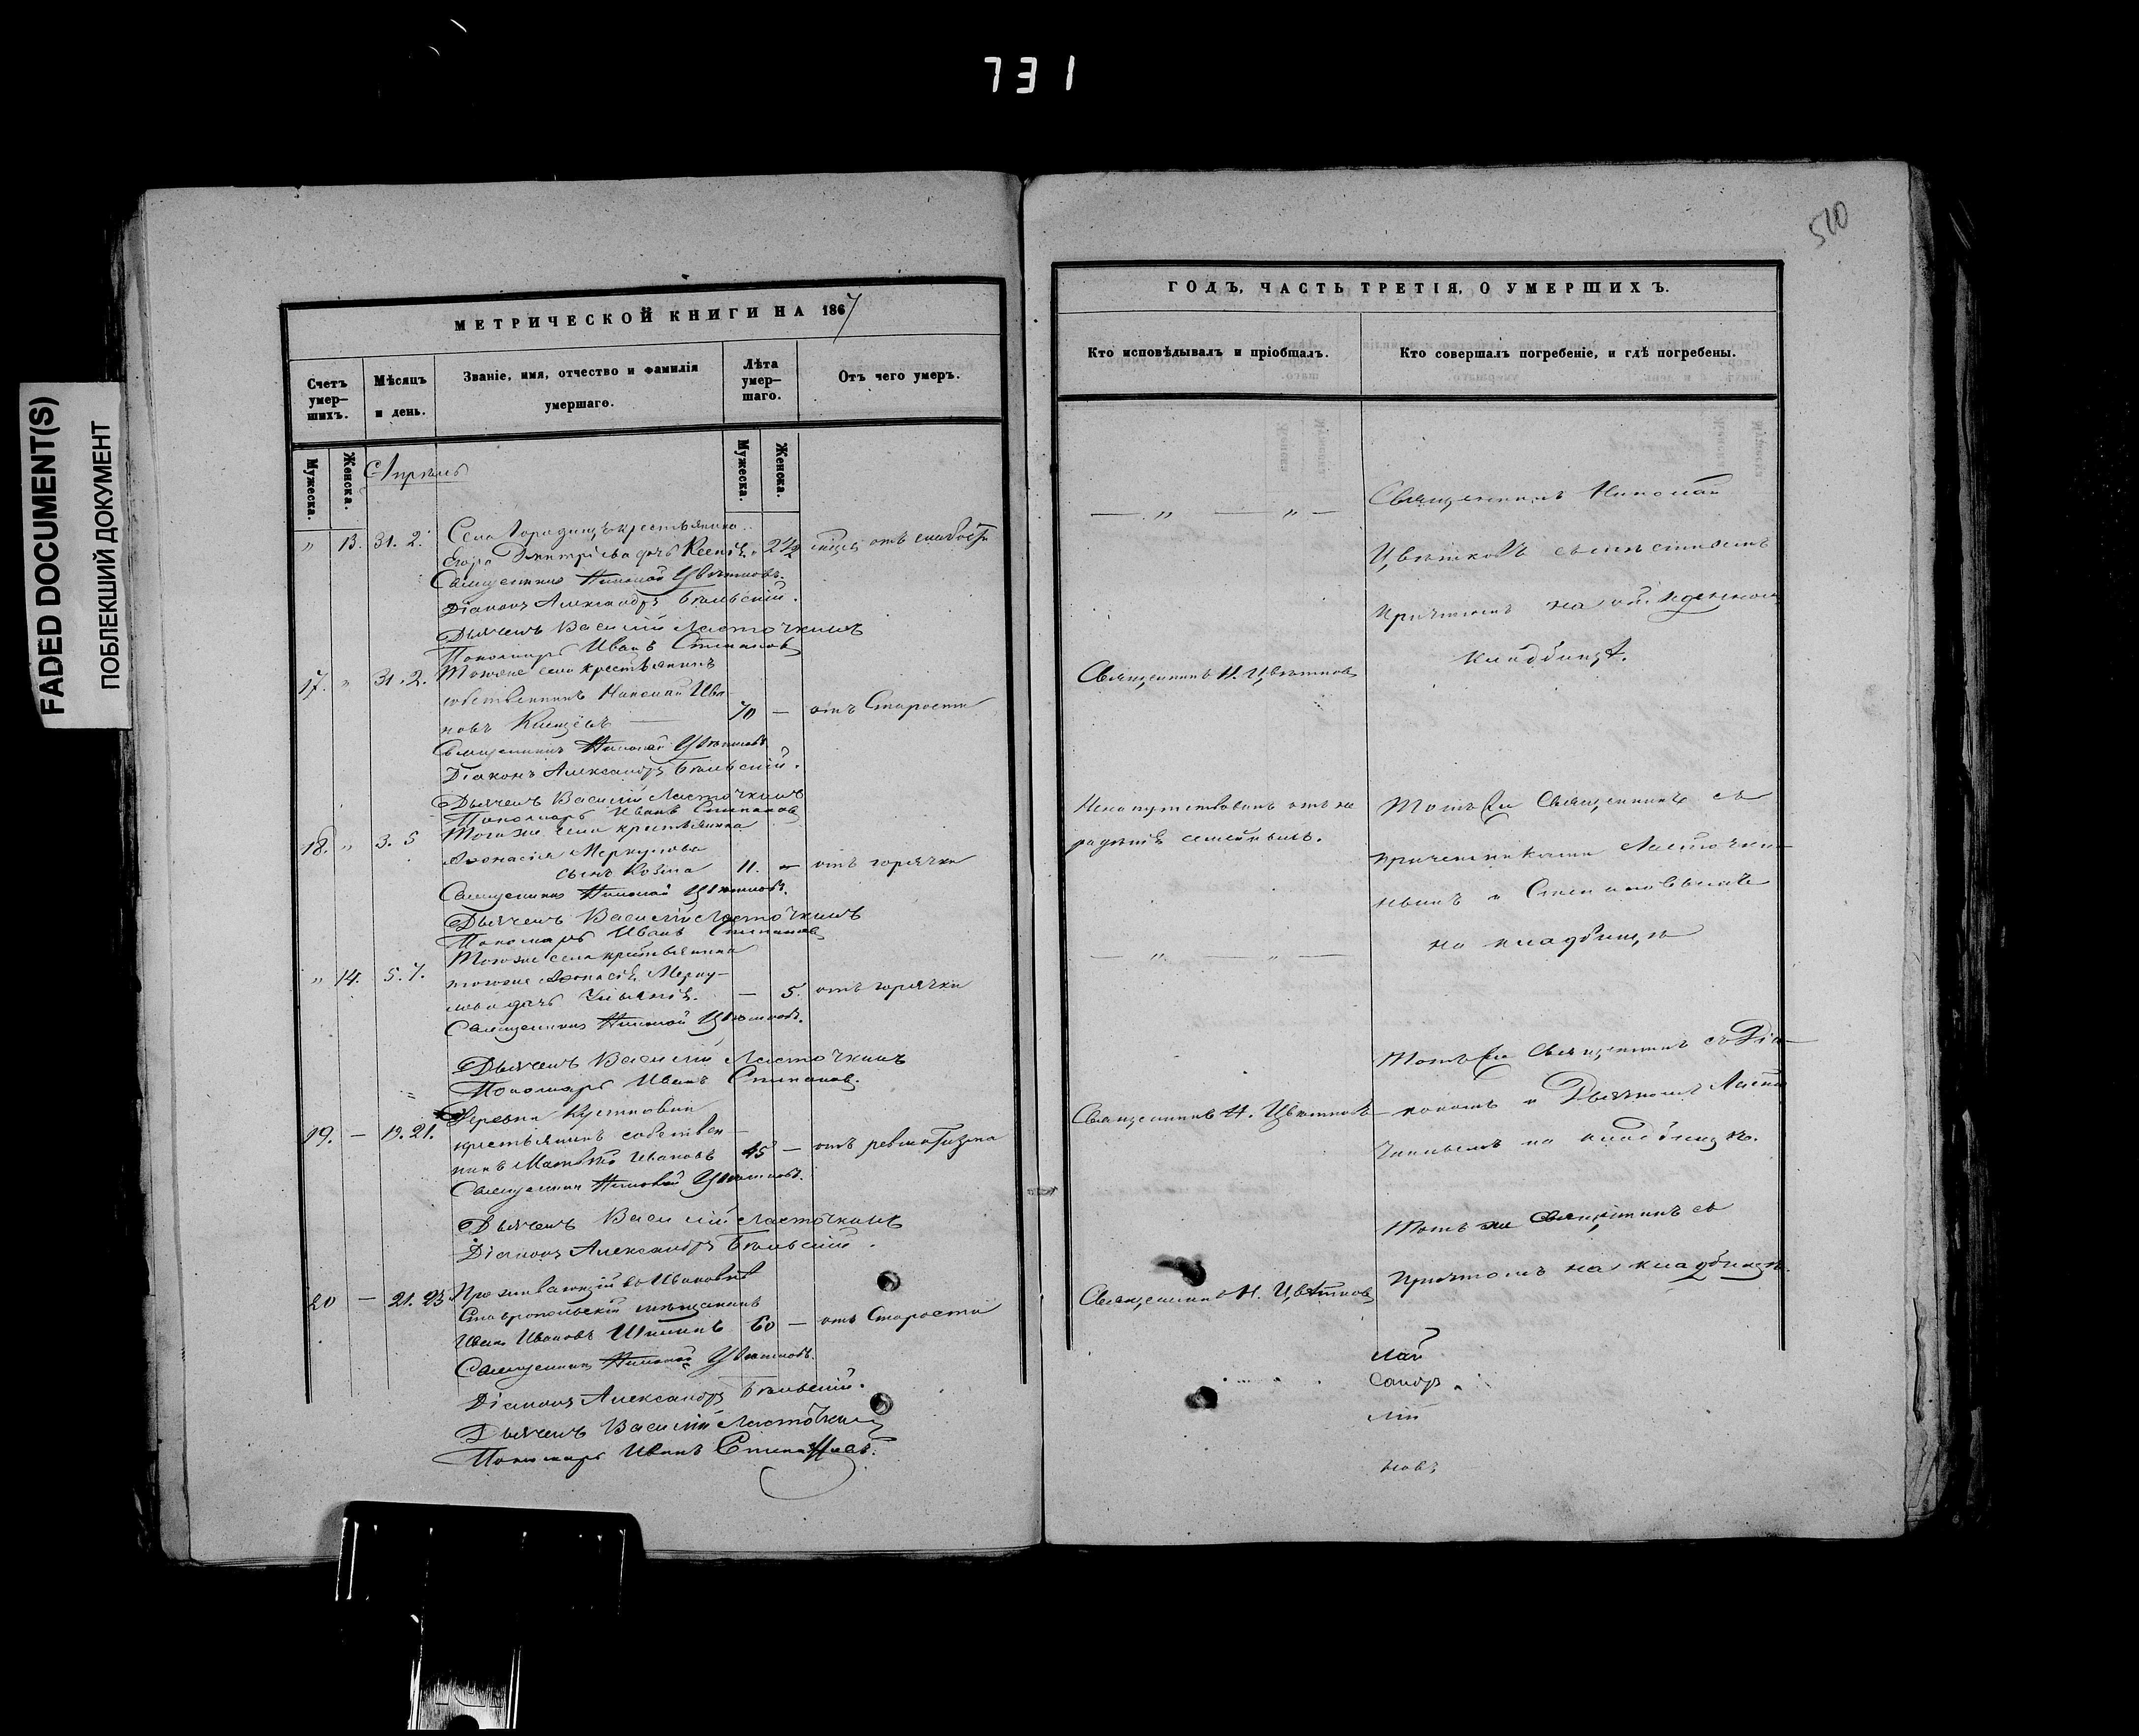 731
FADED DOCUMENT(S)
ПОБЛЕКШИЙ ДОКУМЕНТ
510
МЕТРИЧЕСКОЙ КНИГИ НА 1867
Счетъ умер-шихъ.
Мѣсяцъ и день.
Званіе, имя, отчество и фамилія умершаго.
Лѣта умер-шаго.
Отъ чего умеръ.
Мужеска.
Женска.
Мужеска.
Женска.
Апрѣль
" 13. 31. 2. Села Городищъ крестьянина
Егора Дмитріева дочь Ксенія. " 2 1/2 отъ слабости
Священникъ Николай Цвѣтковъ.
Діаконъ Александръ Бѣльскій.
Дьячекъ Василій Ласточкинъ
Пономарь Иванъ Степановъ
17. " 31. 2. Тогоже села крестьянинъ
собственникъ Николай Ива
новъ 70 — отъ Старости
Священникъ Николай Цвѣтковъ
Діаконъ Александръ Бѣльскій.
Дьячекъ Василій Ласточкинъ
Пономарь Иванъ Степановъ
18. " 3. 5 Тогоже села крестьянина
Аѳонасія Меркулова
сынъ Козма 11. — отъ горячки
Священникъ Николай Цвѣтковъ.
Дьячекъ Василій Ласточкинъ
Пономарь Иванъ Степановъ
" 14. 5. 7. Тогоже села крестьянина
тогоже Аѳонасія Мерку-
лова дочь — 5. отъ горячки
Священникъ Николай Цвѣтковъ.
Дьячекъ Василій Ласточкинъ
Пономарь Иванъ Степановъ.
19. — 19. 21. Деревни
крестьянинъ собствен-
никъ Матвѣй Ивановъ 45 — отъ ревматизма
Священникъ Николай Цвѣтковъ.
Дьячекъ Василій Ласточкинъ
Діаконъ Александръ Бѣльскій.
20 — 21. 23 Проживающій въ
Ставропольскій мѣщанинъ
Иванъ Ивановъ 60 — отъ Старости
Священникъ Николай Цвѣтковъ.
Діаконъ Александръ Бѣльскій.
Дьячекъ Василій Ласточкинъ
Пономарь Иванъ Степановъ.
ГОДЪ, ЧАСТЬ ТРЕТІЯ, О УМЕРШИХЪ.
Кто исповѣдывалъ и пріобщалъ.
Кто совершалъ погребеніе, и гдѣ погребены.
— " — " —
Священникъ Николай
Цвѣтковъ съ мѣстнымъ
причтомъ на
кладбищѣ.
Священникъ Н. Цвѣтковъ
Ненапутствованъ отъ не
радѣнія семейныхъ.
Тотъ же Священникъ съ
причетниками Ласточки-
нымъ и Степановымъ
на кладбищѣ
— " — " —
Тотъ же Священникъ съ Діа-
кономъ и Дьячкомъ Ласто
чкинымъ на кладбищѣ.
Священникъ Н. Цвѣтковъ
Тотъ же Священникъ съ
Причтомъ на кладбищѣ.
Священникъ Н. Цвѣтковъ
лай
сандръ
лій
новъ